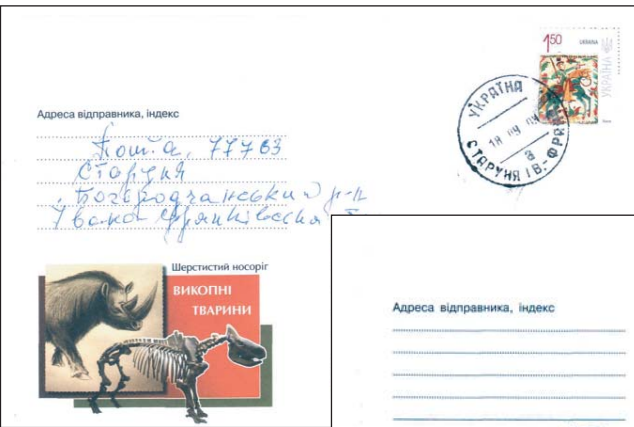 1.50 UKRAINA
УКРАЇНА
УКРАЇНА
18 09 09
а
СТАРУНЯ ІВ.-ФРАН
Адреса відправника, індекс
Пошта, 77763
Старуня
Богородчанський р-н
Івано Франківська
Шерстистий носоріг
ВИКОПНІ
ТВАРИНИ
Адреса відправника, індекс